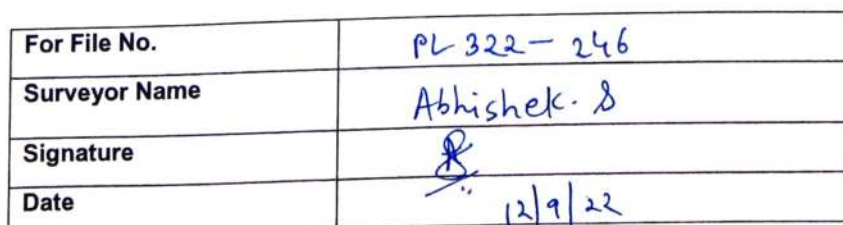 For File No. PL 322 - 246
Surveyor Name Abhishek. S
Signature
Date 12/9/22